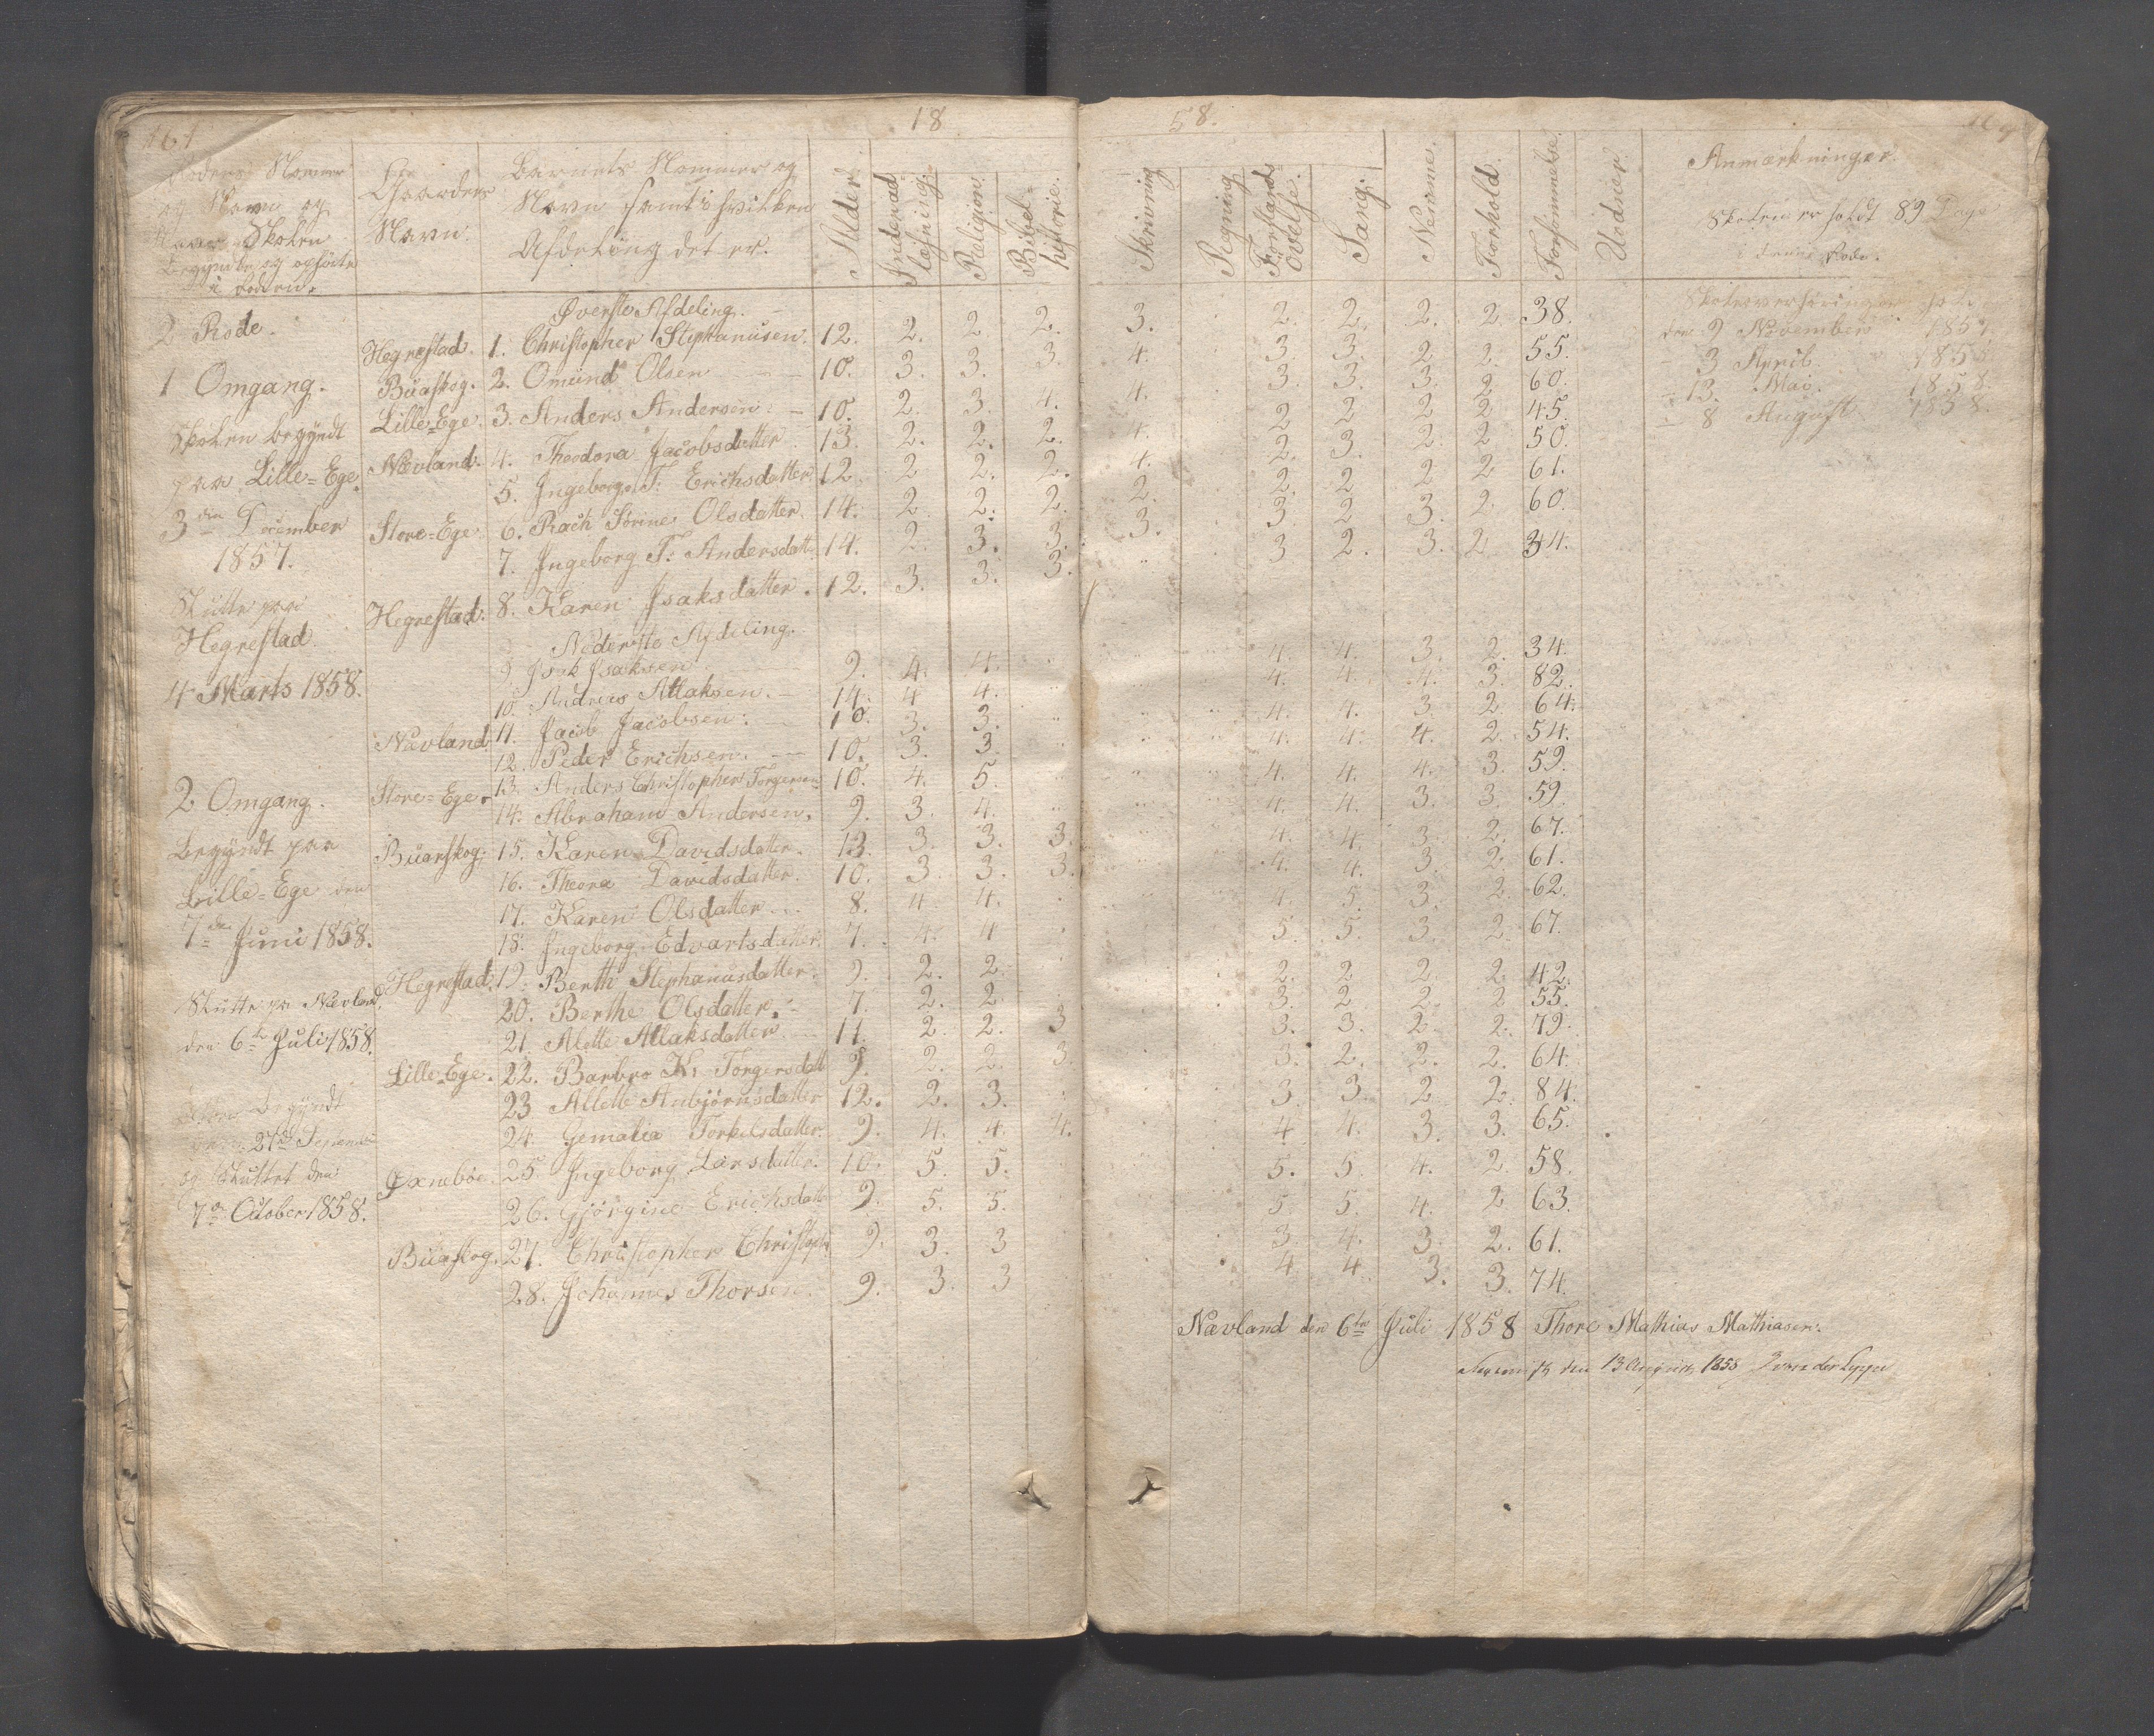 161
18
58.
Roders Nommer
og Navn og
Naar Skolen
begyndte og ophørte
i Roden.
Gaardens
Navn.
Barnets Nommer og
Navn samt i hvilken
Afdeling det er.
Alder
Indenad-
læsning.
Religion.
Bibel-
historie.
Skrivning
Regning
Forstands
Øvelse.
Sang.
Nemme.
Forhold.
Forsømmelse.
Uodner.
Anmærkninger.
Skolen er holdt 89 Dage
i denne Rode.
Øverste Afdeling.
2 Rode.
Hegrestad. 1. Christopher Stephanusen. 12. 2. 2 2. 3. 2. 2. 2. 2. 38.
1 Omgang. Buaskog. 2. Omund Olsen 10. 3. 3. 3. 4. 3. 3. 2. 2. 55.
Lille-Ege. 3. Anders Andersen. 10. 2. 3. 4. 4. 3. 3. 3. 2 60.
Skolen begyndt Nævland. 4. Theodora Jacobsdatter 13. 2. 2. 2. 4. 2 2 2 2 45.
paa Lille-Ege 5. Ingeborg T. Erichsdatter 12. 2 2. 2. 4. 2. 3. 2. 2 50.
3die December Store-Ege. 6. Rach Sørine Olsdatter. 14. 2 2. 2. 2. 2. 2 2 2 61.
1857. 7. Ingeborg T. Andersdatt. 14. 2. 3. 3. 3. 3. 2 3. 2. 60.
Slutte paa
Hegrestad Hegrestad. 8. Karen Isaksdatter. 12. 3. 3. 3. 3 2. 3. 2 34.
Nederste Afdeling.
9. Isak Isaksen 9. 4. 4. 4. 4. 3. 2. 34.
4 Marts 1858. 10. Andreas Atlaksen. 14. 4 4. 4. 4. 4. 3. 82.
Nævland 11. Jacob Jacobsen. 10. 3. 3. 4. 4. 3. 2 64.
12. Peder Erichsen. 10. 3. 3. 4. 4. 4. 2. 54.
2 Omgang. Store-Ege. 13. Anders Christopher Torgersen 10. 4. 5. 4. 4. 4. 3. 59.
14. Abraham Andersen. 9. 3. 4. 4. 4. 3. 3. 59.
begyndt paa Buaskog. 15. Karen Davidsdatter. 13. 3. 3. 3. 4. 4. 3. 2. 67.
16. Theora Davidsdatter. 10. 3. 3. 3. 4. 4. 3. 2. 61.
Lille-Ege den 17. Karen Olsdatter 8. 4. 4. 4. 5. 3. 2. 62.
7de Juni 1858. 18. Ingeborg Edvartsdatter. 7. 4. 4 5. 5. 3. 2. 67.
Hegrestad. 19. Berth Stephanusdatter. 9. 2. 2. 2. 2 2 2. 42.
Slutte pa Nævland 20. Berthe Olsdatter. 7. 2. 2 3. 2 2. 2 55.
den 6te Juli 1858. 21. Alette Atlaksdatter 11. 2. 2. 3 3. 3. 2. 2. 79.
Lille-Ege. 22. Barbro K. Torgersdatt 9. 2. 2. 3. 3. 2. 2. 2. 64.
begyndt 23 Allette Anbjørnsdatter 12. 2. 3. 3. 3. 2 2. 84.
24. Gemalia Torkelsdatter. 9. 4. 4. 4. 4 4. 3. 3. 65.
og Sluttet den Øxnebøe. 25. Ingeborg Larsdatter. 10. 5. 5. 5. 5. 4. 2. 58.
7de October 1858. 26. Gjørgine Erichsdatt 9. 5. 5. 5. 5. 4. 2 63.
Buaskog. 27. Christopher 9. 3. 3 3. 4. 3. 2. 61.
28. Johannes Thorsen. 9. 3. 3 4 4 3. 3. 74.
den 9 November 1857
3 April 1858
13. Mai. 1858.
8 August 1858.
Nævland den 6te Juli 1858 Thore Mathias Mathiasen.
den 13 August 1858